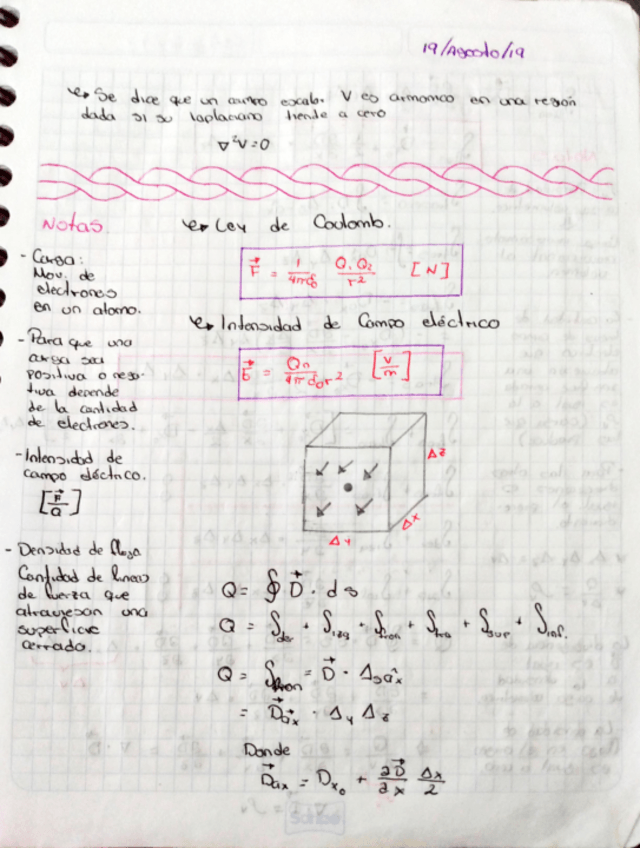 19/Agosto/19
Se dice que un campo escalar V es armonico en una region
dada si su laplaciano tiende a cero
∇²V=0
Notas
- Carga:
Mov. de
electrones
en un atomo.
- Para que una
carga sea
positiva o nega-
tiva depende
de la cantidad
de electrones.
- Intensidad de
campo eléctrico.
[F⃗/Q]
- Densidad de flujo
Cantidad de lineas
de fuerza que
atraviesan una
superficie
cerrada.
Ley de Coulomb.
F⃗ = 1/4πε₀ Q₁Q₂/r² [N]
Intensidad de Campo eléctrico
E⃗ = Qn/4πε₀r² [V/m]
Δz
Δx
Δy
Q = ∮ D⃗ · ds
Q = ∫der + ∫izq + ∫fron + ∫tra + ∫sup + ∫inf.
Q = ∫fron = D⃗ · Δs âx
= D⃗ax · Δy Δz
Donde
D⃗ax = Dx₀ + ∂D⃗/∂x Δx/2
Scribe